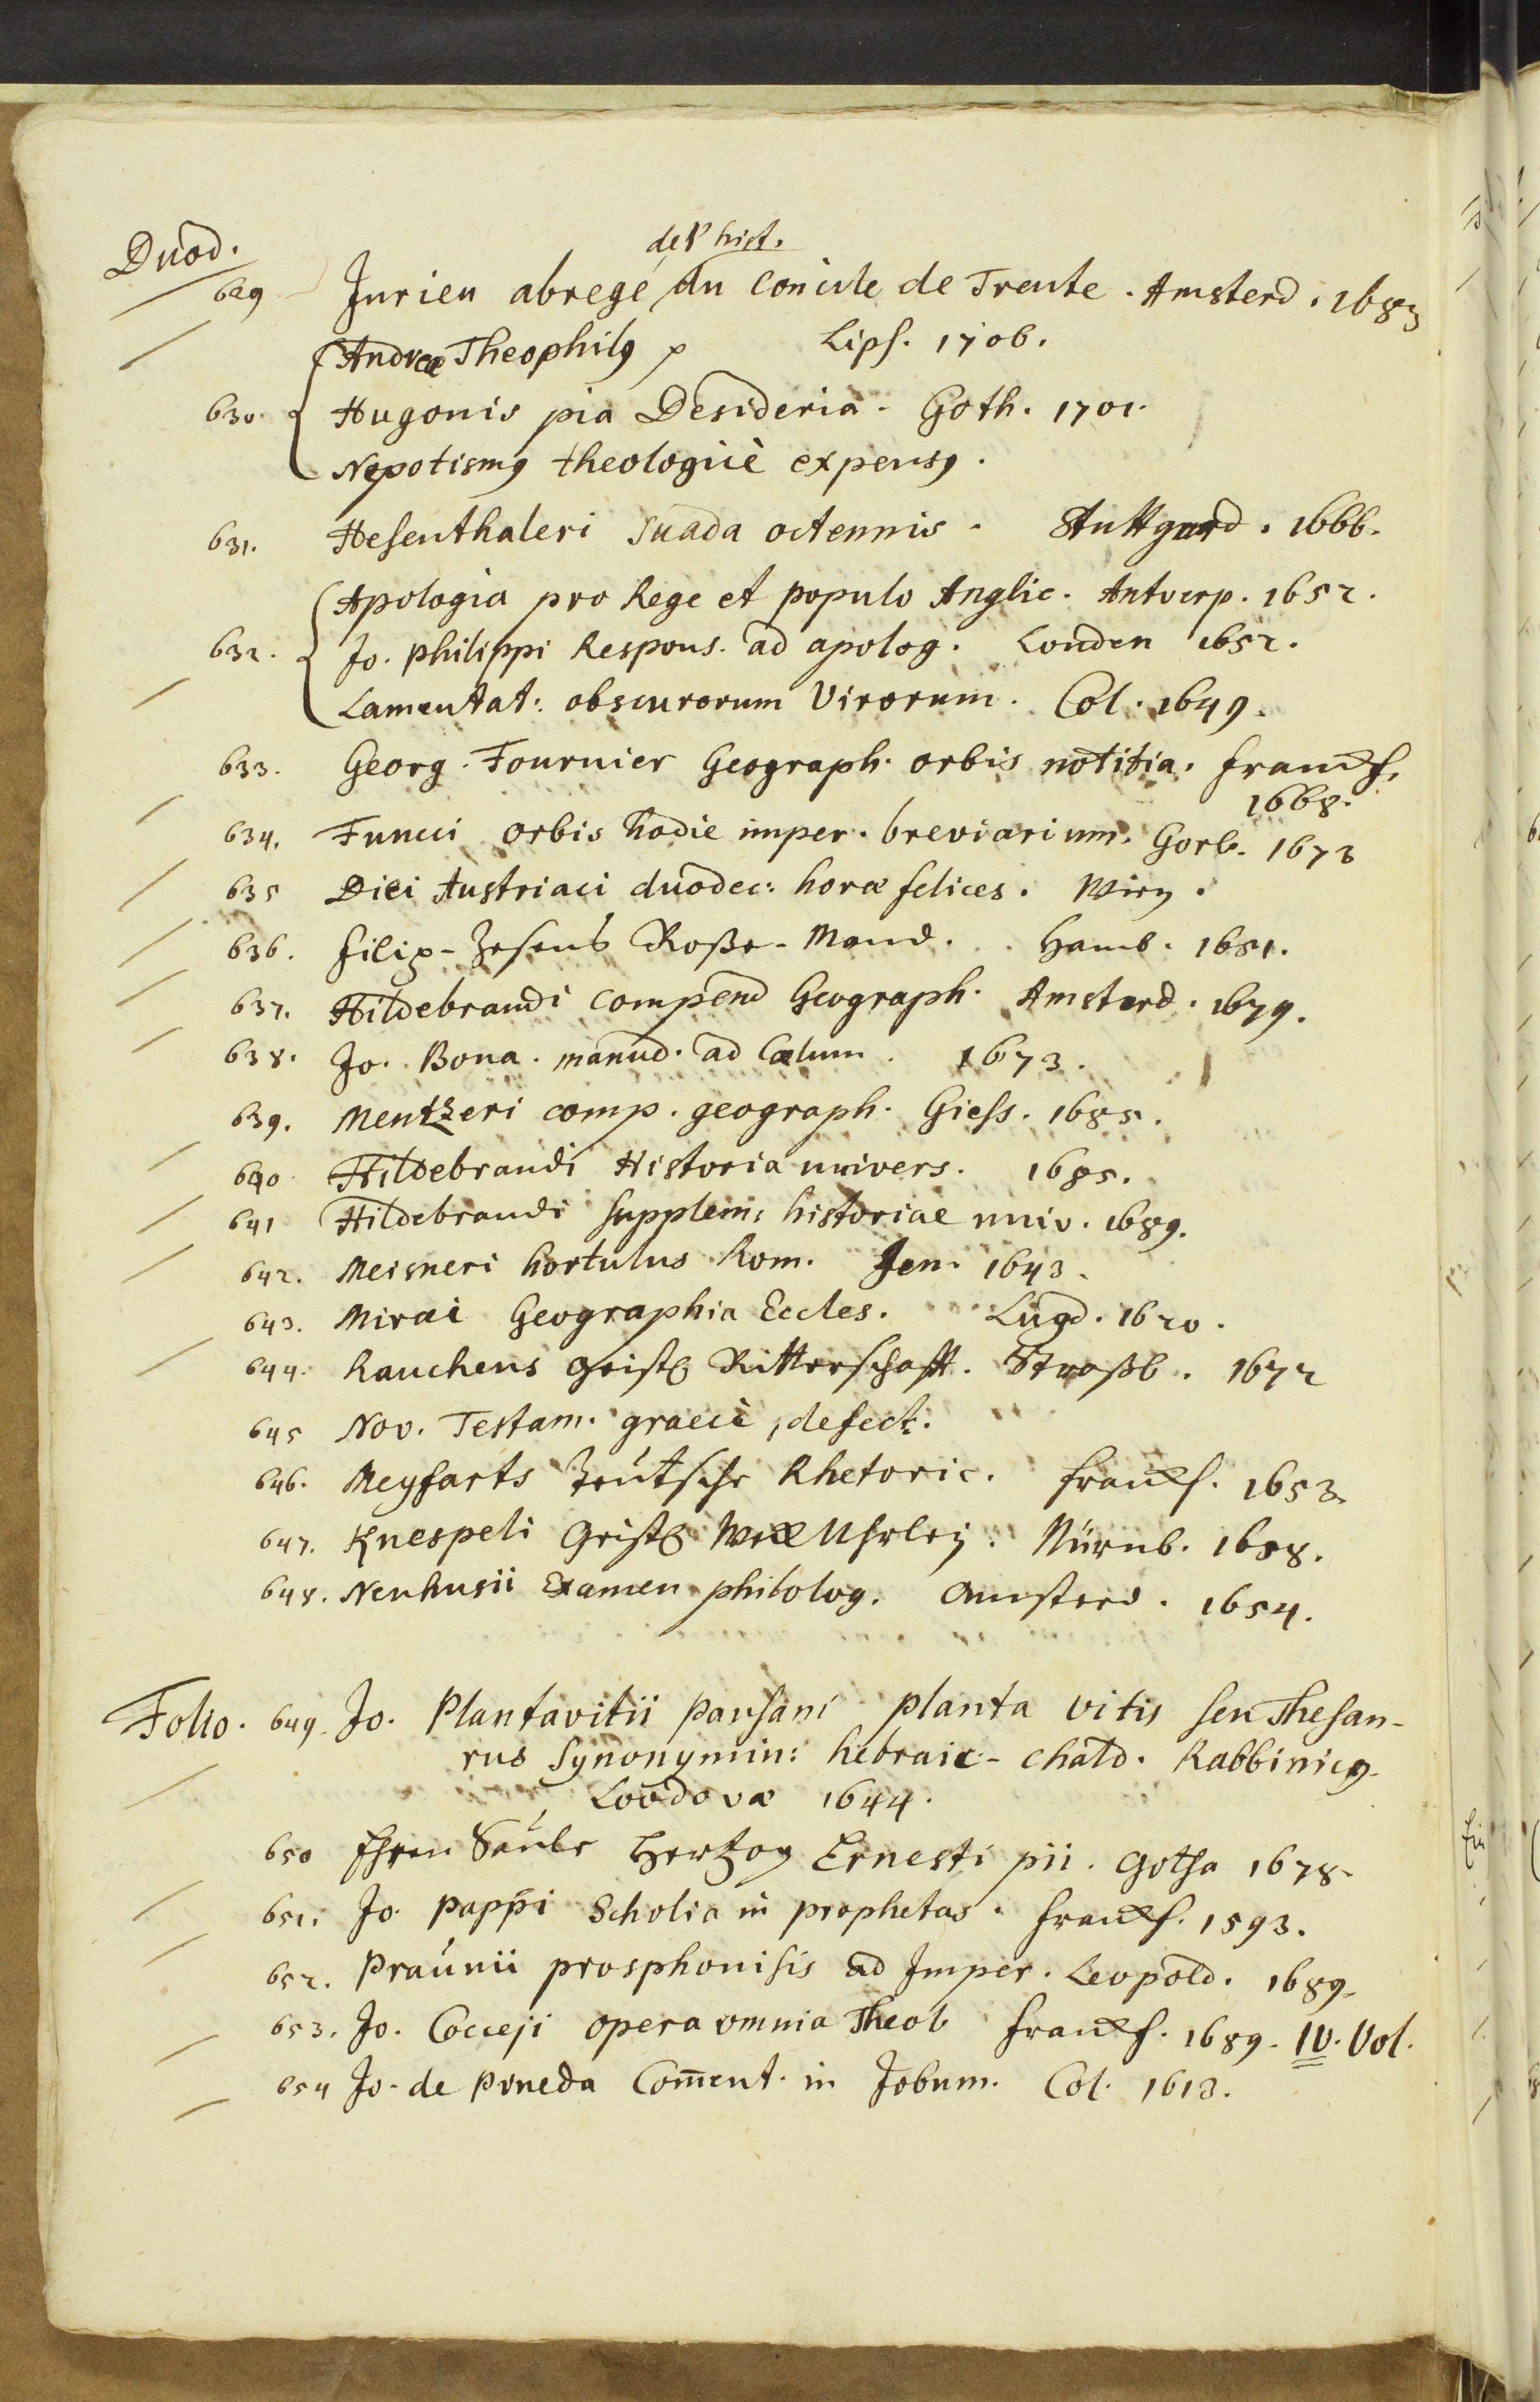 Duod.
de l' hist.
629 Jurieu abregé du Concile de Trente. Amsterd. 1683
Andreæ Theophilg Lips. 1706.
630. Hugonis pia Desideria. Goth. 1701.
Nepotismg theologicè expensg.
631. Hesenthaleri Suada octennis. Stuttgard. 1666.
Apologia pro Rege et populo Anglic. Antverp. 1652.
632. Jo. Philippi Respons. ad apolog. Londen 1652.
Lamentat: obscurorum Virorum. Col. 1649.
633. Georg. Fournier Geograph. orbis notitia. Franckf.
1668.
634. Funcci orbis hodie imper. breviarium. Gorl. 1673
635 Diei Austriaci duodec: horæ felices. Wien.
636. Filip-Zesens Rose-Mand. Hamb. 1651.
637. Hildebrandi Compend Geograph. Amsterd. 1679.
638. Jo. Bona. manud. ad Cælum. 1673.
639. Mentzeri comp. geograph. Giess. 1685.
640 Hildebrandi Historia univers. 1685.
641 Hildebrandi supplem: historiae univ. 1689.
642. Meisneri hortulus Rom. Jen. 1643.
643. Miræi Geographia Eccles. Lugd. 1620.
644. Rauchens Geistl Ritterschafft. Straßb. 1672
645 Nov. Testam. graecè, defect.
646. Meyfarts Teütsche Rhetoric. Franckf. 1653.
647. Knespeli Geistl Uhrley. Nürnb. 1688.
648. Neuhusii Examen philolog. Amsterd. 1654.
Folio. 649. Jo. Plantavitii Pausani planta vitis seu Thesau-
rus Synonymin: hebraic- chald. Rabbinicg
Loodovæ 1644.
650 Ehren Säule Hertzog Ernesti pii. Gotha 1678.
651. Jo. Pappi Scholia in prophetas. Franckf. 1593.
652. Praunii prosphonisis ad Imper. Leopold. 1689.
653. Jo. Cocceji opera omnia Theol Franckf. 1689. IV. Vol.
654 Jo. de Pineda Com̄ent. in Jobum. Col. 1613.